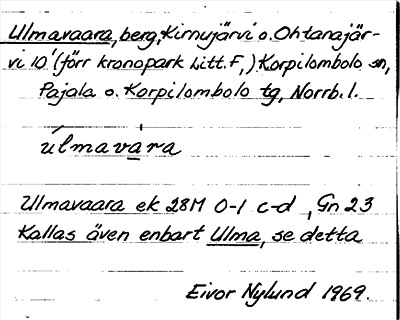 Ulmavaara, berg, Kirnujärvi o. Ohtanajär-
vi 10' (förr kronopark Litt. F,) Korpilombolo sn,
Pajala o. Korpilombolo tg, Norrb. l.
úlmavàra
Ulmavaara ek 28M 0-1 c-d, Gn 23
Kallas även enbart Ulma, se detta
Eivor Nylund 1969.